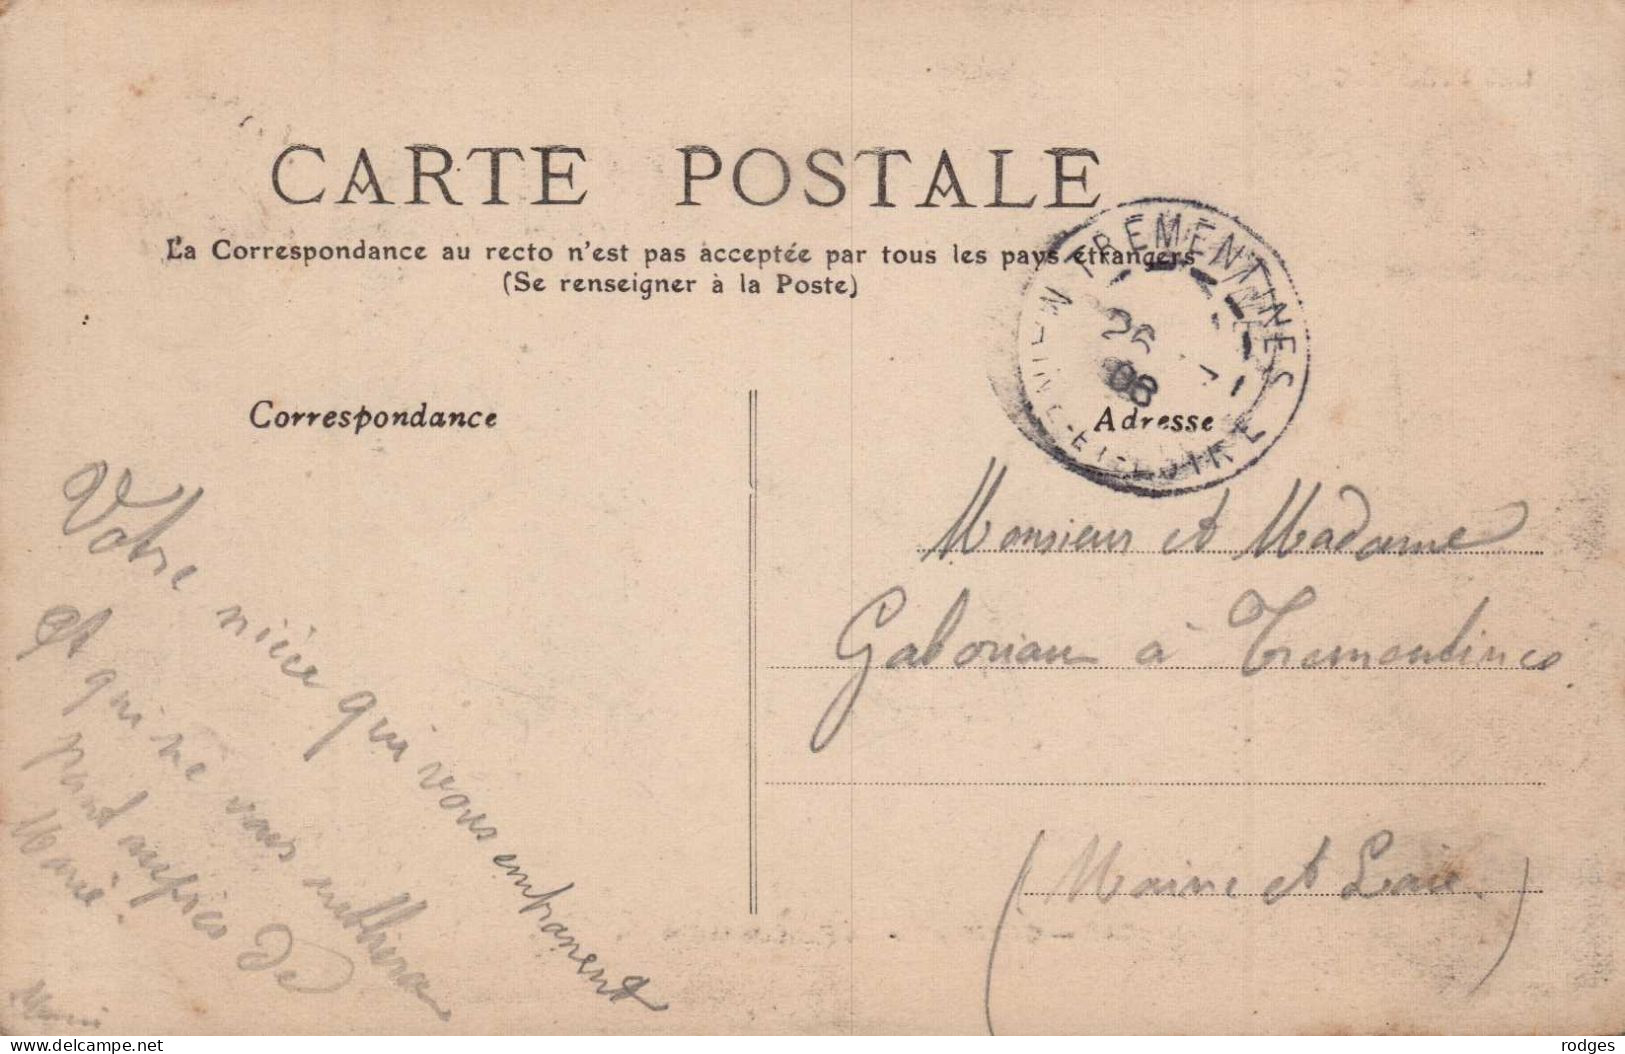 CARTE POSTALE
La Correspondance au recto n'est pas acceptée par tous les pays étrangers
(Se renseigner à la Poste)
TREMENTINES
26
06
-ET-LOIRE
Correspondance
Adresse
Votre nièce qui vous
et qui ne vous
point auprès de
Marie.
Monsieur et Madame
Gaboriau à Trementines
(Maine et Loire)
delcampe.net
rodges